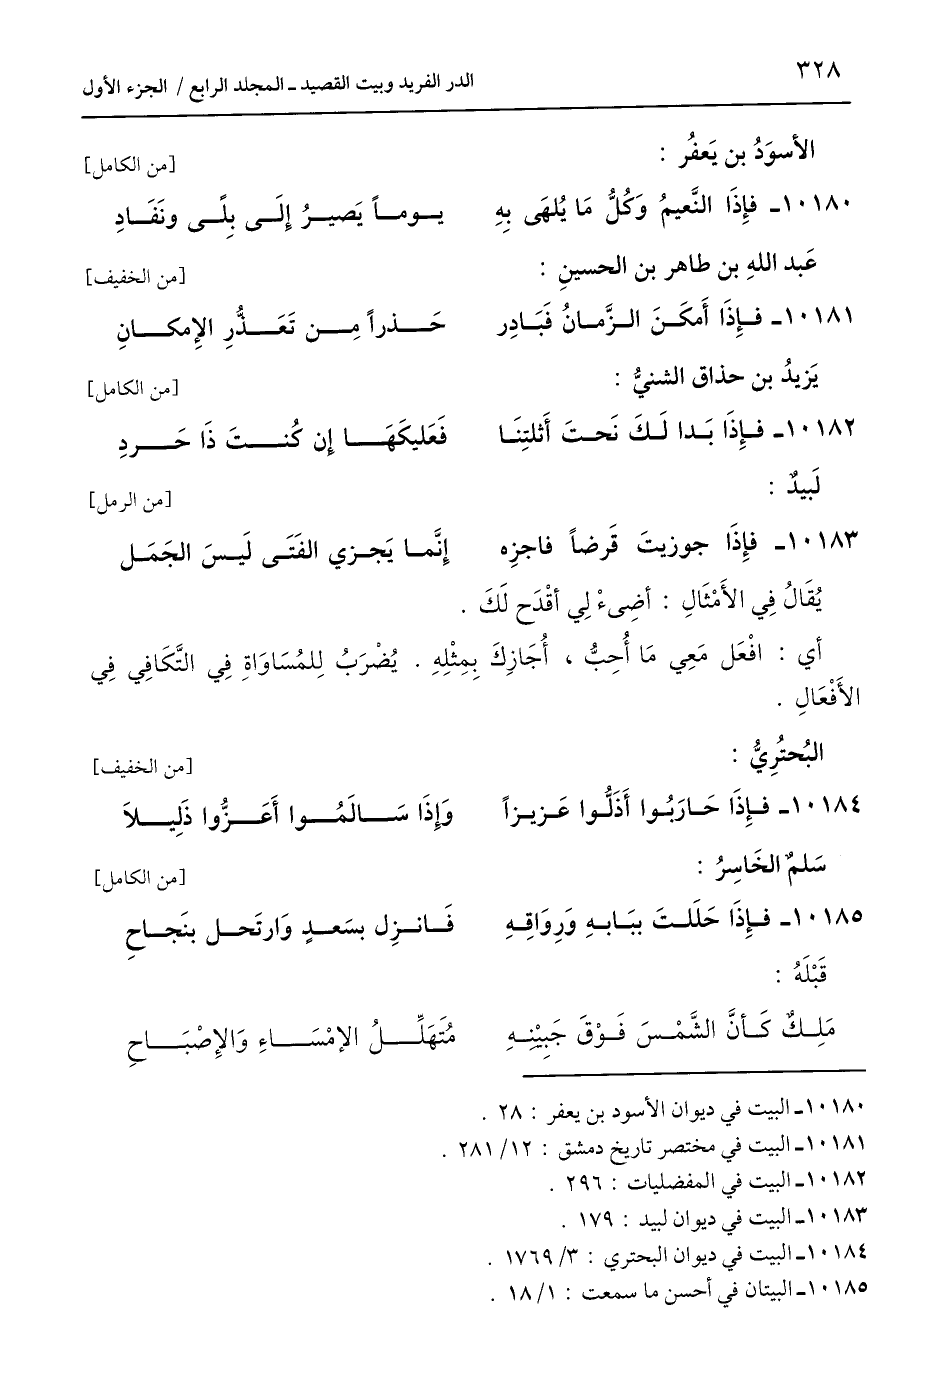 ٣٢٨
الدر الفريد وبيت القصيد ـ المجلد الرابع / الجزء الأول
الأسوَدُ بن يَعفُر :
[من الكامل]
١٠١٨٠ـ فإِذَا النَّعيمُ وَكُلُّ مَا يُلهَى بِهِ يـومـاً يَصيـرُ إِلَـى بِلًـى ونَفَـادِ
عَبد اللهِ بن طاهر بن الحسينِ :
[من الخفيف]
١٠١٨١ـ فـإِذَا أَمكَـنَ الـزَّمـانُ فَبَـادِر حَـذراً مِـن تَعَـذُّرِ الإِمكـانِ
يَزيدُ بن حذاق الشنيُّ :
[من الكامل]
١٠١٨٢ـ فـإِذَا بَـدا لَـكَ نَحـتَ أَثلتِنَـا فَعَليكَهَـا إِن كُنـتَ ذَا حَـردِ
لَبيدٌ :
[من الرمل]
١٠١٨٣ـ فإِذَا جوزيتَ قَرضاً فاجزِه إِنَّمـا يَجـزي الفَتَـى لَيـسَ الجَمَـل
يُقَالُ فِي الأَمْثَالِ : أَضِىءْ لِي أقْدَح لَكَ .
أي : افْعَل مَعِي مَا أُحِبُّ ، أُجَازِكَ بِمِثْلِهِ . يُضْرَبُ لِلمُسَاوَاةِ فِي التَّكَافِي فِي
الأَفْعَالِ .
البُحتُرِيُّ :
[من الخفيف]
١٠١٨٤ـ فـإِذَا حَـارَبُـوا أَذَلُّـوا عَـزيـزاً وَإِذَا سَـالَمُـوا أَعَـزُّوا ذَلِيـلاَ
سَلمٌ الخَاسِرُ :
[من الكامل]
١٠١٨٥ـ فـإِذَا حَلَلـتَ ببَـابـهِ وَرِوَاقِـهِ فَـانـزِل بسَعـدٍ وَارتَحـل بنَجـاحِ
قَبْلَهُ :
مَلِـكٌ كَـأَنَّ الشَّمْـسَ فَـوْقَ جَبِيْنِـهِ مُتَهَلِّـلُ الإمْسَـاءِ وَالإِصْبَـاحِ
١٠١٨٠ـ البيت في ديوان الأسود بن يعفر : ٢٨ .
١٠١٨١ـ البيت في مختصر تاريخ دمشق : ١٢/ ٢٨١ .
١٠١٨٢ـ البيت في المفضليات : ٢٩٦ .
١٠١٨٣ـ البيت في ديوان لبيد : ١٧٩ .
١٠١٨٤ـ البيت في ديوان البحتري : ٣/ ١٧٦٩ .
١٠١٨٥ـ البيتان في أحسن ما سمعت : ١/ ١٨ .